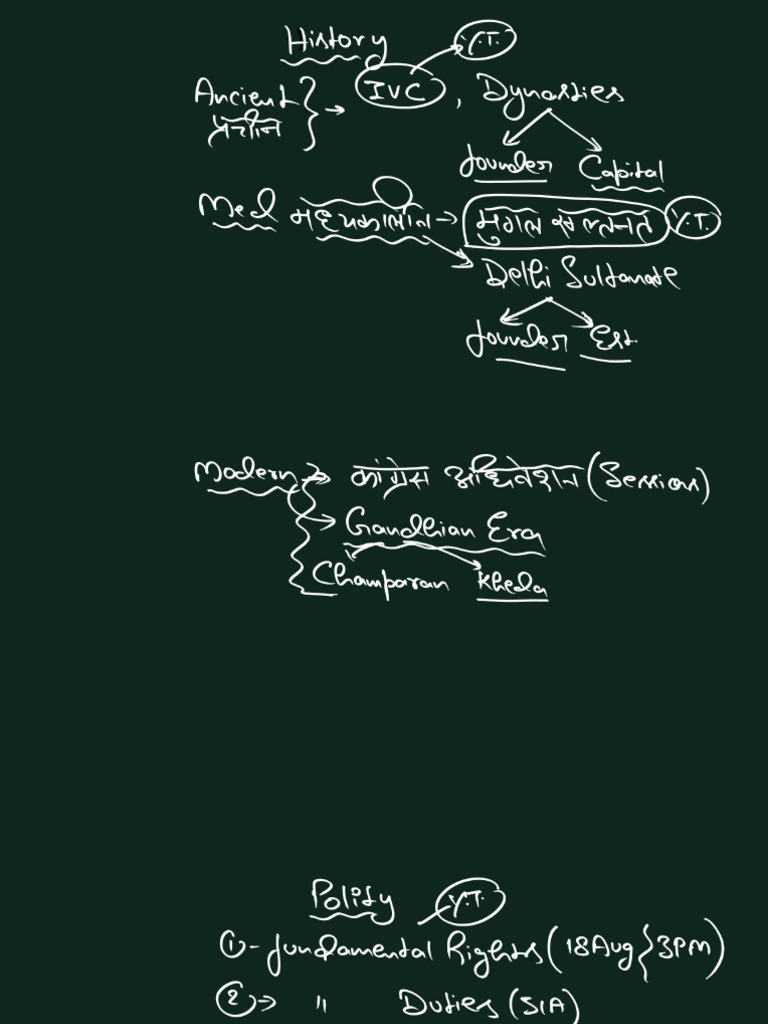 History Y.T.
Ancient } → IVC, Dynasties
प्राचीन
founder Capital
Med मध्यकालीन → मुगल सल्तनत Y.T.
Delhi Sultanate
founder Est.
Modern → कांग्रेस अधिवेशन (Session)
→ Gandhian Era
Champaran Kheda
Polity Y.T.
①- fundamental Rights (18 Aug } 3PM)
②→ " Duties (51A)